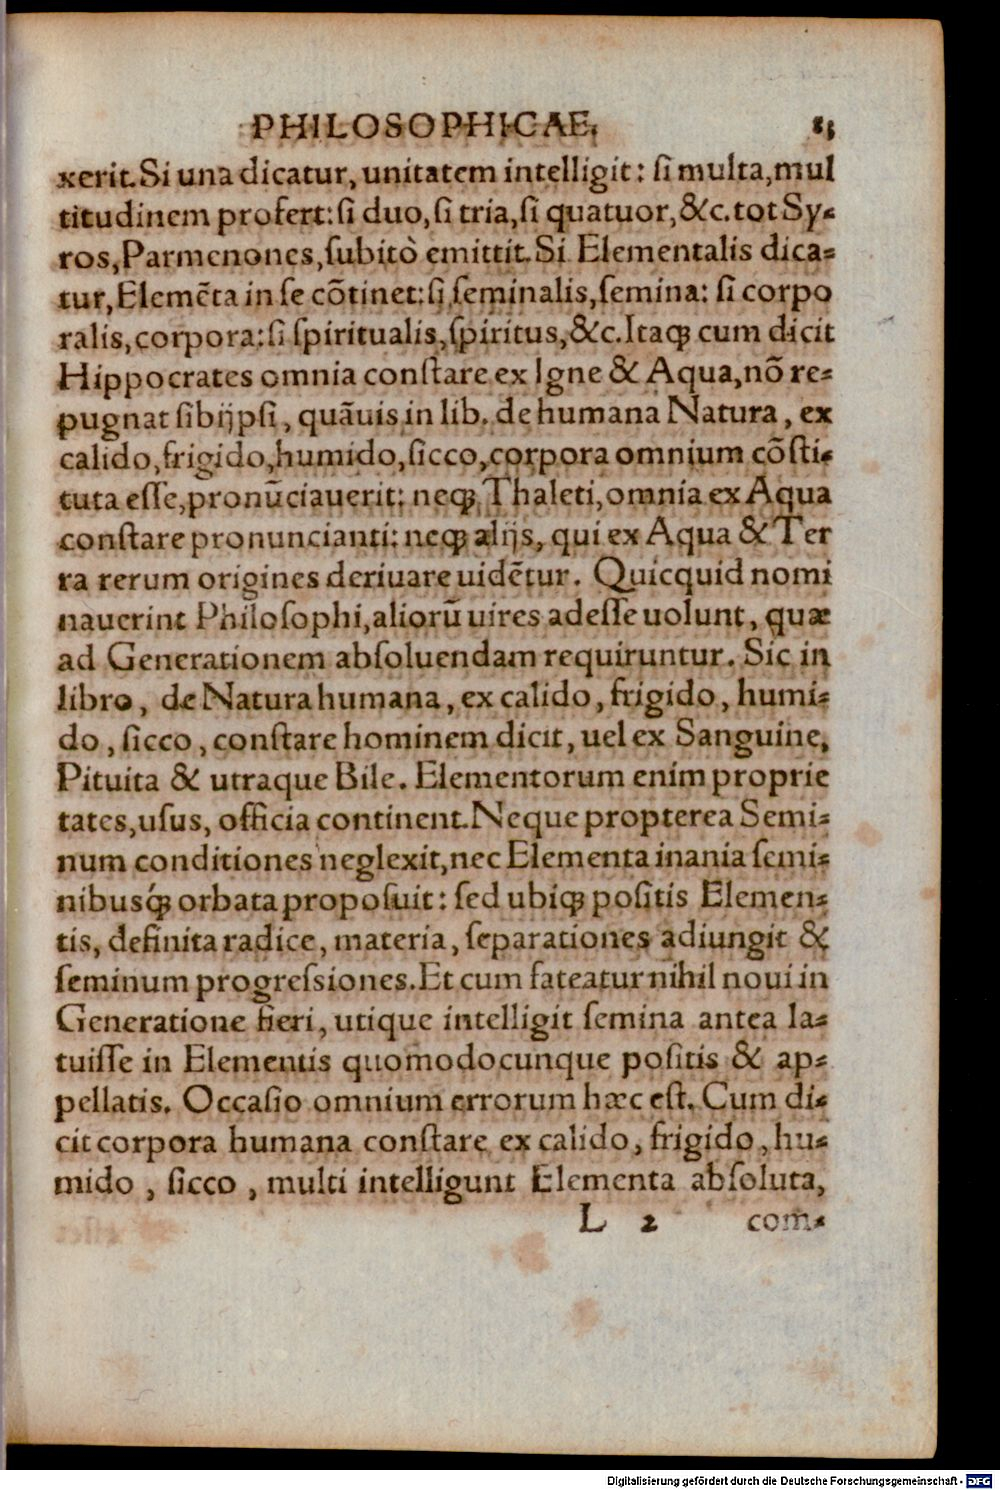 PHILOSOPHICAE,
xerit. Si una dicatur, unitatem intelligit: ſi multa, mul
titudinem profert: ſi duo, ſi tria, ſi quatuor, &c. tot Sy-
ros, Parmenones, ſubitò emittit. Si Elementalis dica-
tur, Elemẽta in ſe cõtinet: ſi ſeminalis, ſemina: ſi corpo
ralis, corpora: ſi ſpiritualis, ſpiritus, &c. Itaꝗ cum dicit
Hippocrates omnia conſtare ex Igne & Aqua, nõ re-
pugnat ſibijpſi, quãuis in lib. de humana Natura, ex
calido, frigido, humido, ſicco, corpora omnium cõſti-
tuta eſſe, pronũciauerit: neꝗ Thaleti, omnia ex Aqua
conſtare pronuncianti: neꝗ alijs, qui ex Aqua & Ter
ra rerum origines deriuare uidẽtur. Quicquid nomi
nauerint Philoſophi, aliorũ uires adeſſe uolunt, quæ
ad Generationem abſoluendam requiruntur. Sic in
libro, de Natura humana, ex calido, frigido, humi-
do, ſicco, conſtare hominem dicit, uel ex Sanguine,
Pituita & utraque Bile. Elementorum enim proprie
tates, uſus, officia continent. Neque propterea Semi-
num conditiones neglexit, nec Elementa inania ſemi-
nibusꝗ́ orbata propoſuit: ſed ubiꝗ poſitis Elemen-
tis, definita radice, materia, ſeparationes adiungit &
ſeminum progreſsiones. Et cum fateatur nihil noui in
Generatione fieri, utique intelligit ſemina antea la-
tuiſſe in Elementis quomodocunque poſitis & ap-
pellatis. Occaſio omnium errorum hæc eſt. Cum di-
cit corpora humana conſtare ex calido, frigido, hu-
mido, ſicco, multi intelligunt Elementa abſoluta,
L 2 com-
Digitalisierung gefördert durch die Deutsche Forschungsgemeinschaft - DFG